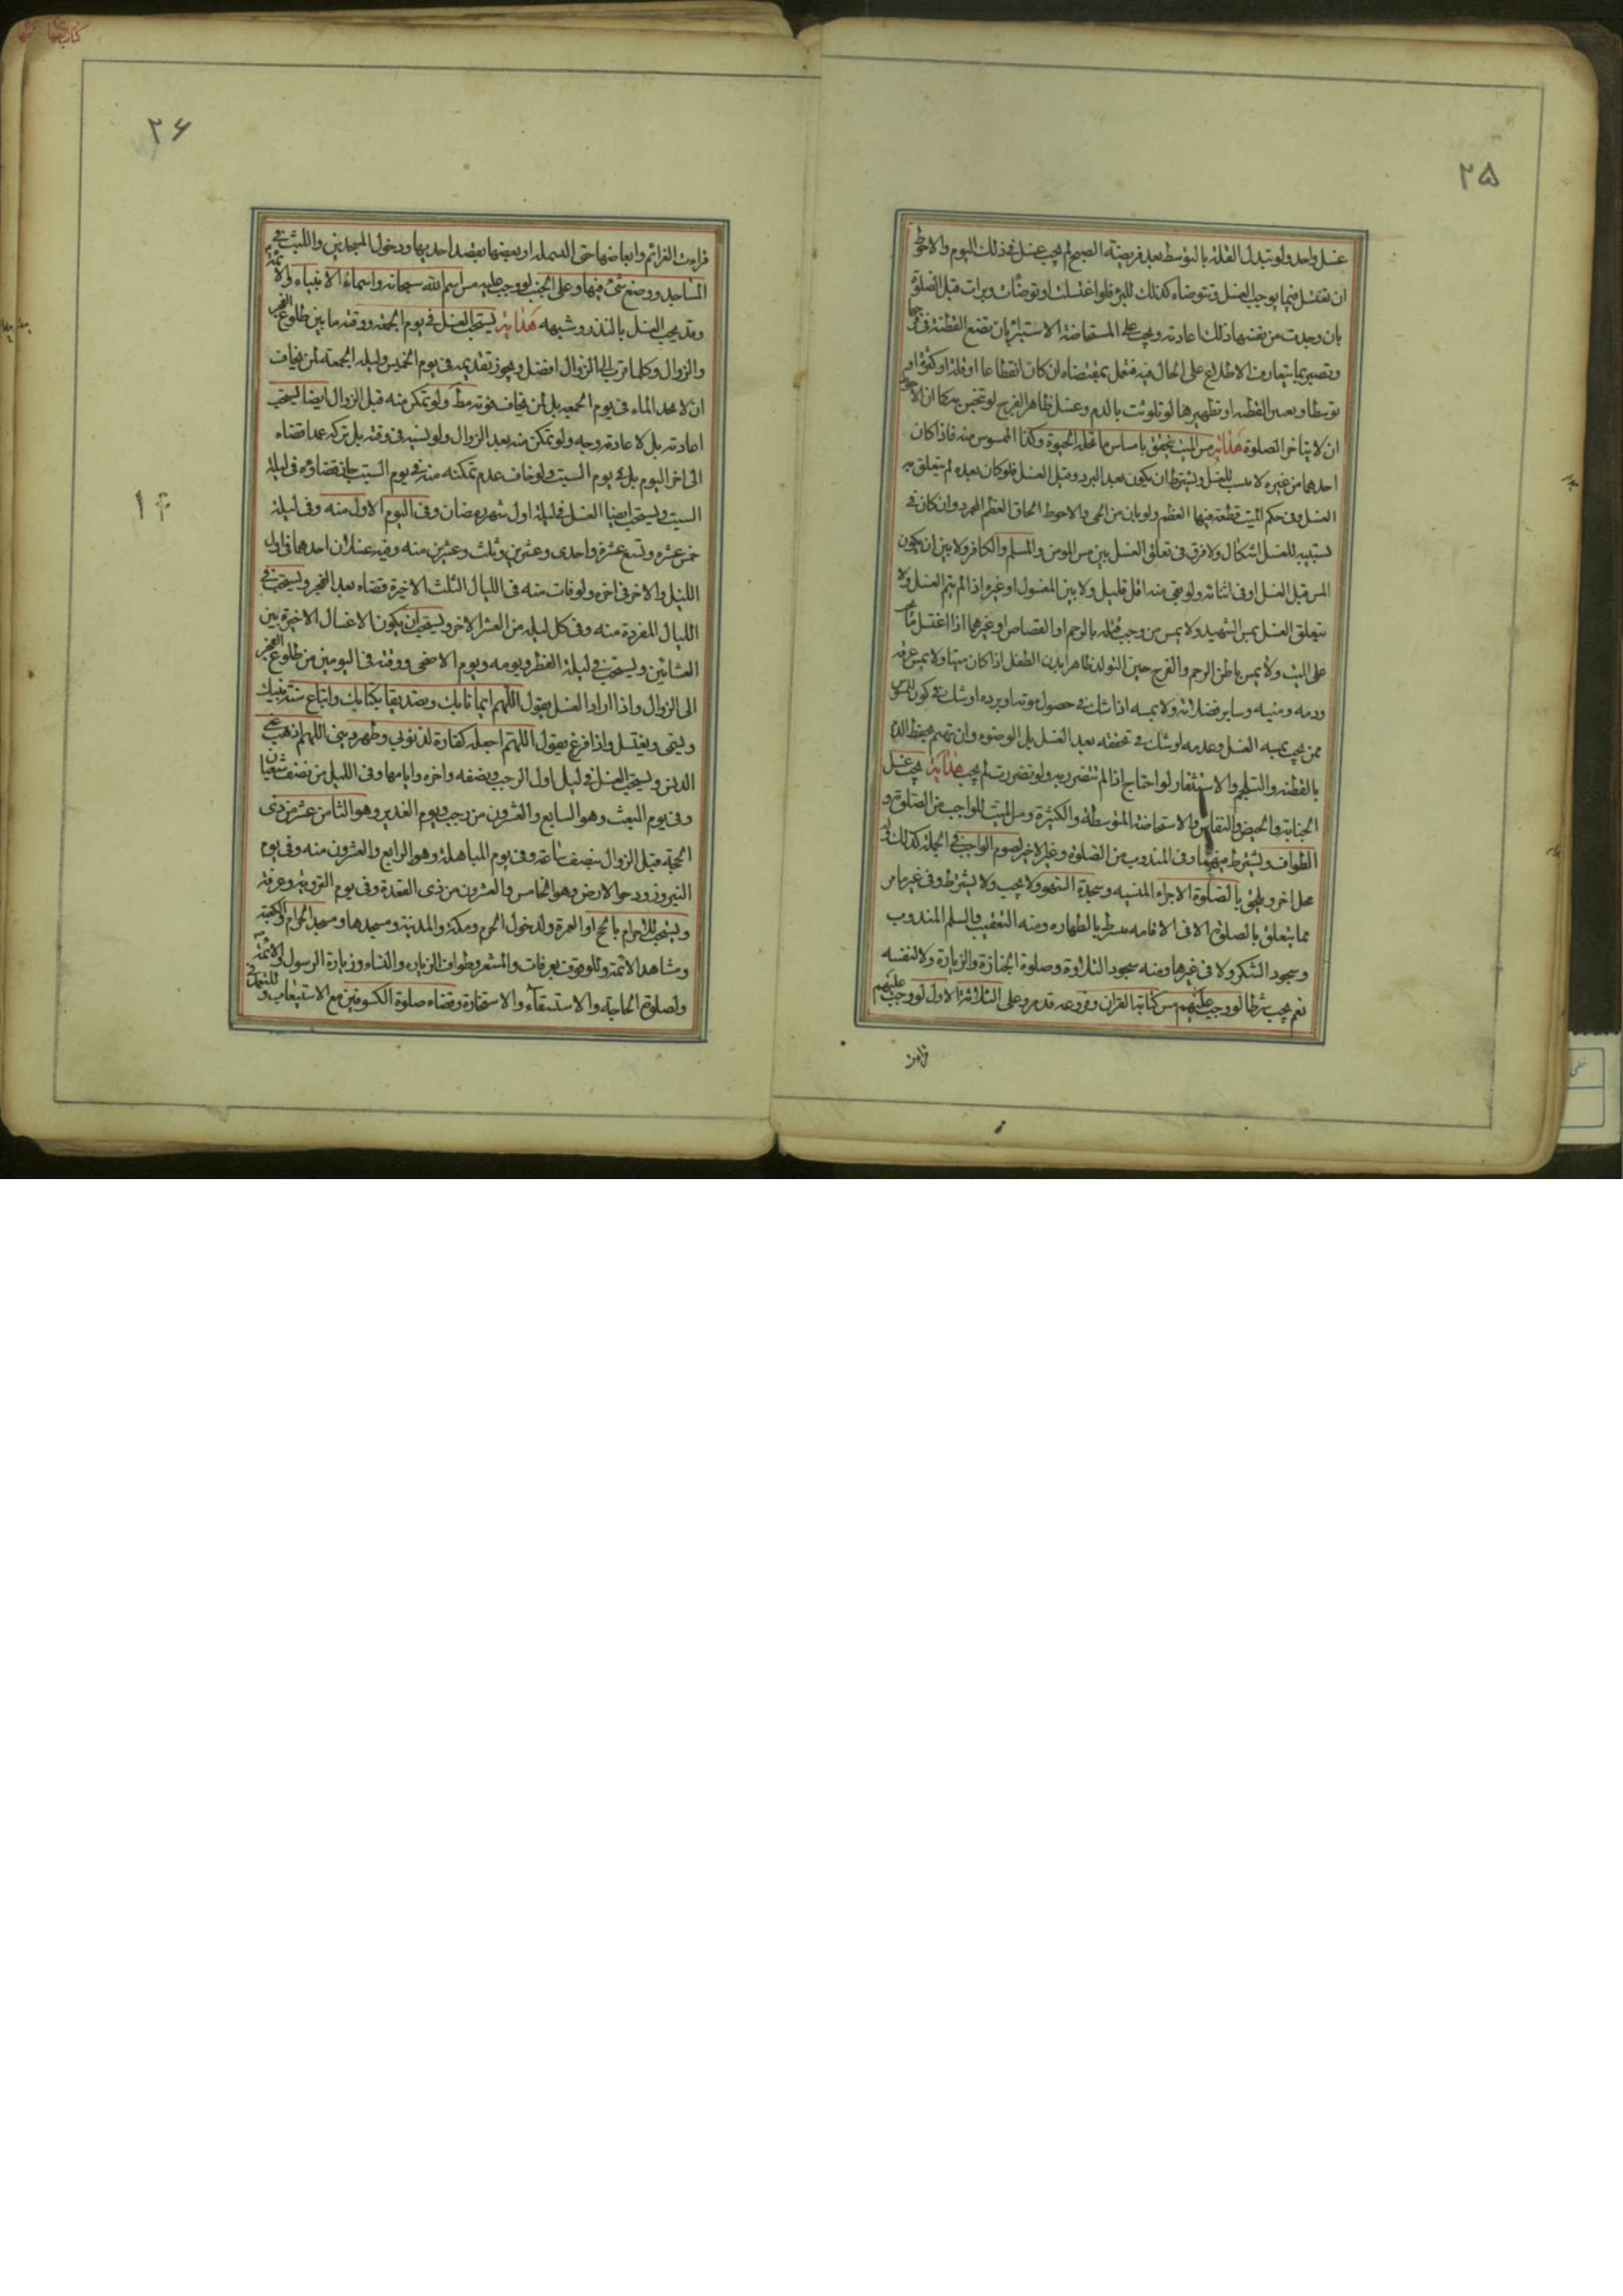 ٢٥
غسل واحد ولو تبدل القلة بالتوسط بعد فريضة الصبح لم يجب غسل في ذلك اليوم والاحوط
ان تغتسل فيما يوجب الغسل وتتوضاء كذلك للبرء فلو اغتسلت او توضأت وبرات قبل الصلوة
بان وجدت من نفسها ذلك اعادته ويجب على المستحاضة الاستبراء بان تضع القطنة في فرجها
وتصبر بما يتعارف الاطلاع على الحال فيه فتعمل بمقتضاه ان كان انقطاعا او قلة او كثرة او
توسطا وبعسر القطنة او تطهيرها لو تلوثت بالدم وغسل ظاهر الفرج لو تنجس به كما ان الاحوط
ان لا يتاخر الصلوة هداية مس الميت يتحقق بامساس ما تحله الحيوة وكذا الممسوس منه فاذا كان
احدهما من غيره لا سبب للغسل ويشترط ان يكون بعد البرد وقبل الغسل فلو كان بعده لم يتعلق به
الغسل وفي حكم الميت قطعة فيها العظم ولو بان من الحي والاحوط الحاق العظم المجرد وان كان في
تسبيبه للغسل اشكال ولا فرق في تعلق الغسل بين مس المومن والمسلم والكافر ولا بين ان يكون
المس قبل الغسل او في اثنائه ولو بقي منه اقل قليل ولا بين المغسول او غيره اذا لم يتم الغسل ولا
يتعلق الغسل بمس الشهيد ولا بمس من وجب قتله بالرجم او القصاص او غيرهما اذا اغتسل
على الميت ولا بمس باطن الرحم والفرج حين التولد ظاهرا بدن الطفل اذا كان ميتا ولا بمس عرقه
ودمه ومنيه وساير فضلاته ولا بمسه اذا شك في حصول موته او برده او شك في كون الممسوس
ممن يجب بمسه الغسل وعدمه او شك في تحققه بعد الغسل بل الوضوء وان تهتم بحفظ الدم
بالقطنة والتلجم والاستثفار لو احتاج اذا لم تتضرر به ولو تضررت لم يجب هداية يجب غسل
الجنابة والحيض والنفاس والاستحاضة المتوسطة والكثيرة ومس الميت للواجب من الصلوة و
الطواف ويشترط فيهما وفي المندوب من الصلوة وغير الاخير لصوم الواجب في الجملة كذلك
محل اخر ويلحق بالصلوة الاجزاء المنسية وسجدة السهو ولا يجب ولا يشترط وفي غير ما مر
مما يتعلق بالصلوة الا في الاقامه يشترط بالطهاره ومنه التعقيب والسلم المندوب
وسجود الشكر ولا في غيرها ومنه سجود التلاوة وصلوة الجنازة والزيارة ولا لنفسه
نعم يجب شرطا لو وجب عليهم مس كتابة القران وفروعه قد مر وعلى الثلاثة الاول لو وجب عليهم
قراءت
٢۶
قراءت العزائم وابعاضها حتى البسملة او بعضها بقصد احديها ودخول المسجدين واللبث في
المساجد ووضع شئ فيها وعلى الجنب لو وجب عليه مس اسم الله سبحانه واسماء الانبياء والائمة
وقد يجب الغسل بالنذر وشبهه هداية يستحب الغسل في يوم الجمعة ووقته ما بين طلوع الفجر
والزوال وكلما قرب الى الزوال افضل ويجوز تقديمه في يوم الخميس وليلة الجمعة لمن يخاف
ان لا يجد الماء في يوم الجمعه بل لمن يخاف فوته مط ولو تمكن منه قبل الزوال ايضا يستحب
اعادته بل لاعادته وجه ولو تمكن منه بعد الزوال ولو نسيه في وقته بل تركه عمدا قضاه
الى اخر اليوم بل في يوم السبت ولو خاف عدم تمكنه منه في يوم السبت جاز قضاؤه في ليلة
السبت ويستحب ايضا الغسل في ليلة اول شهر رمضان وفي اليوم الاول منه وفي ليلة
خمس عشره وتسع عشرة واحدى وعشرين وثلث وعشرين منه وفيه غسلان احدهما في اول
الليل والاخر في اخره ولو فات منه في الليال الثلث الاخيرة قضاه بعد الفجر ويستحب في
الليال المفردة منه وفي كل ليلة من العشر الاخر ويستحب ان يكون الاغسال الاخيرة بين
العشائين ويستحب في ليلة الفطر ويومه ويوم الاضحى ووقته في اليومين من طلوع الفجر
الى الزوال واذا اراد الغسل يقول اللهم ايمانا بك وتصديقا بكتابك واتباع سنة نبيك
ويسمي ويغتسل واذا فرغ يقول اللهم اجعله كفارة لذنوبي وطهر ديني اللهم اذهب عني
الدنس ويستحب الغسل في ليل اول الرجب ونصفه واخره وايامها وفي الليل من نصف شعبان
وفي يوم المبعث وهو السابع والعشرون من رجب ويوم الغدير وهو الثامن عشر من ذي
الحجة قبل الزوال بنصف ساعة وفي يوم المباهلة وهو الرابع والعشرون منه وفي يوم
النيروز ودحو الارض وهو الخامس والعشرون من ذي القعدة وفي يوم التروية وعرفة
ويستحب للاحرام بالحج او العمرة ولدخول الحرم ومكة والمدينة ومسجدها ومسجد الحرام والكعبة
ومشاهد الائمة وللوقوف بعرفات والمشعر وطواف الزيارة والنساء وزيارة الرسول والائمة
ولصلوة الحاجة والاستسقاء والاستخارة وقضاء صلوة الكسوفين مع الاستيعاب و